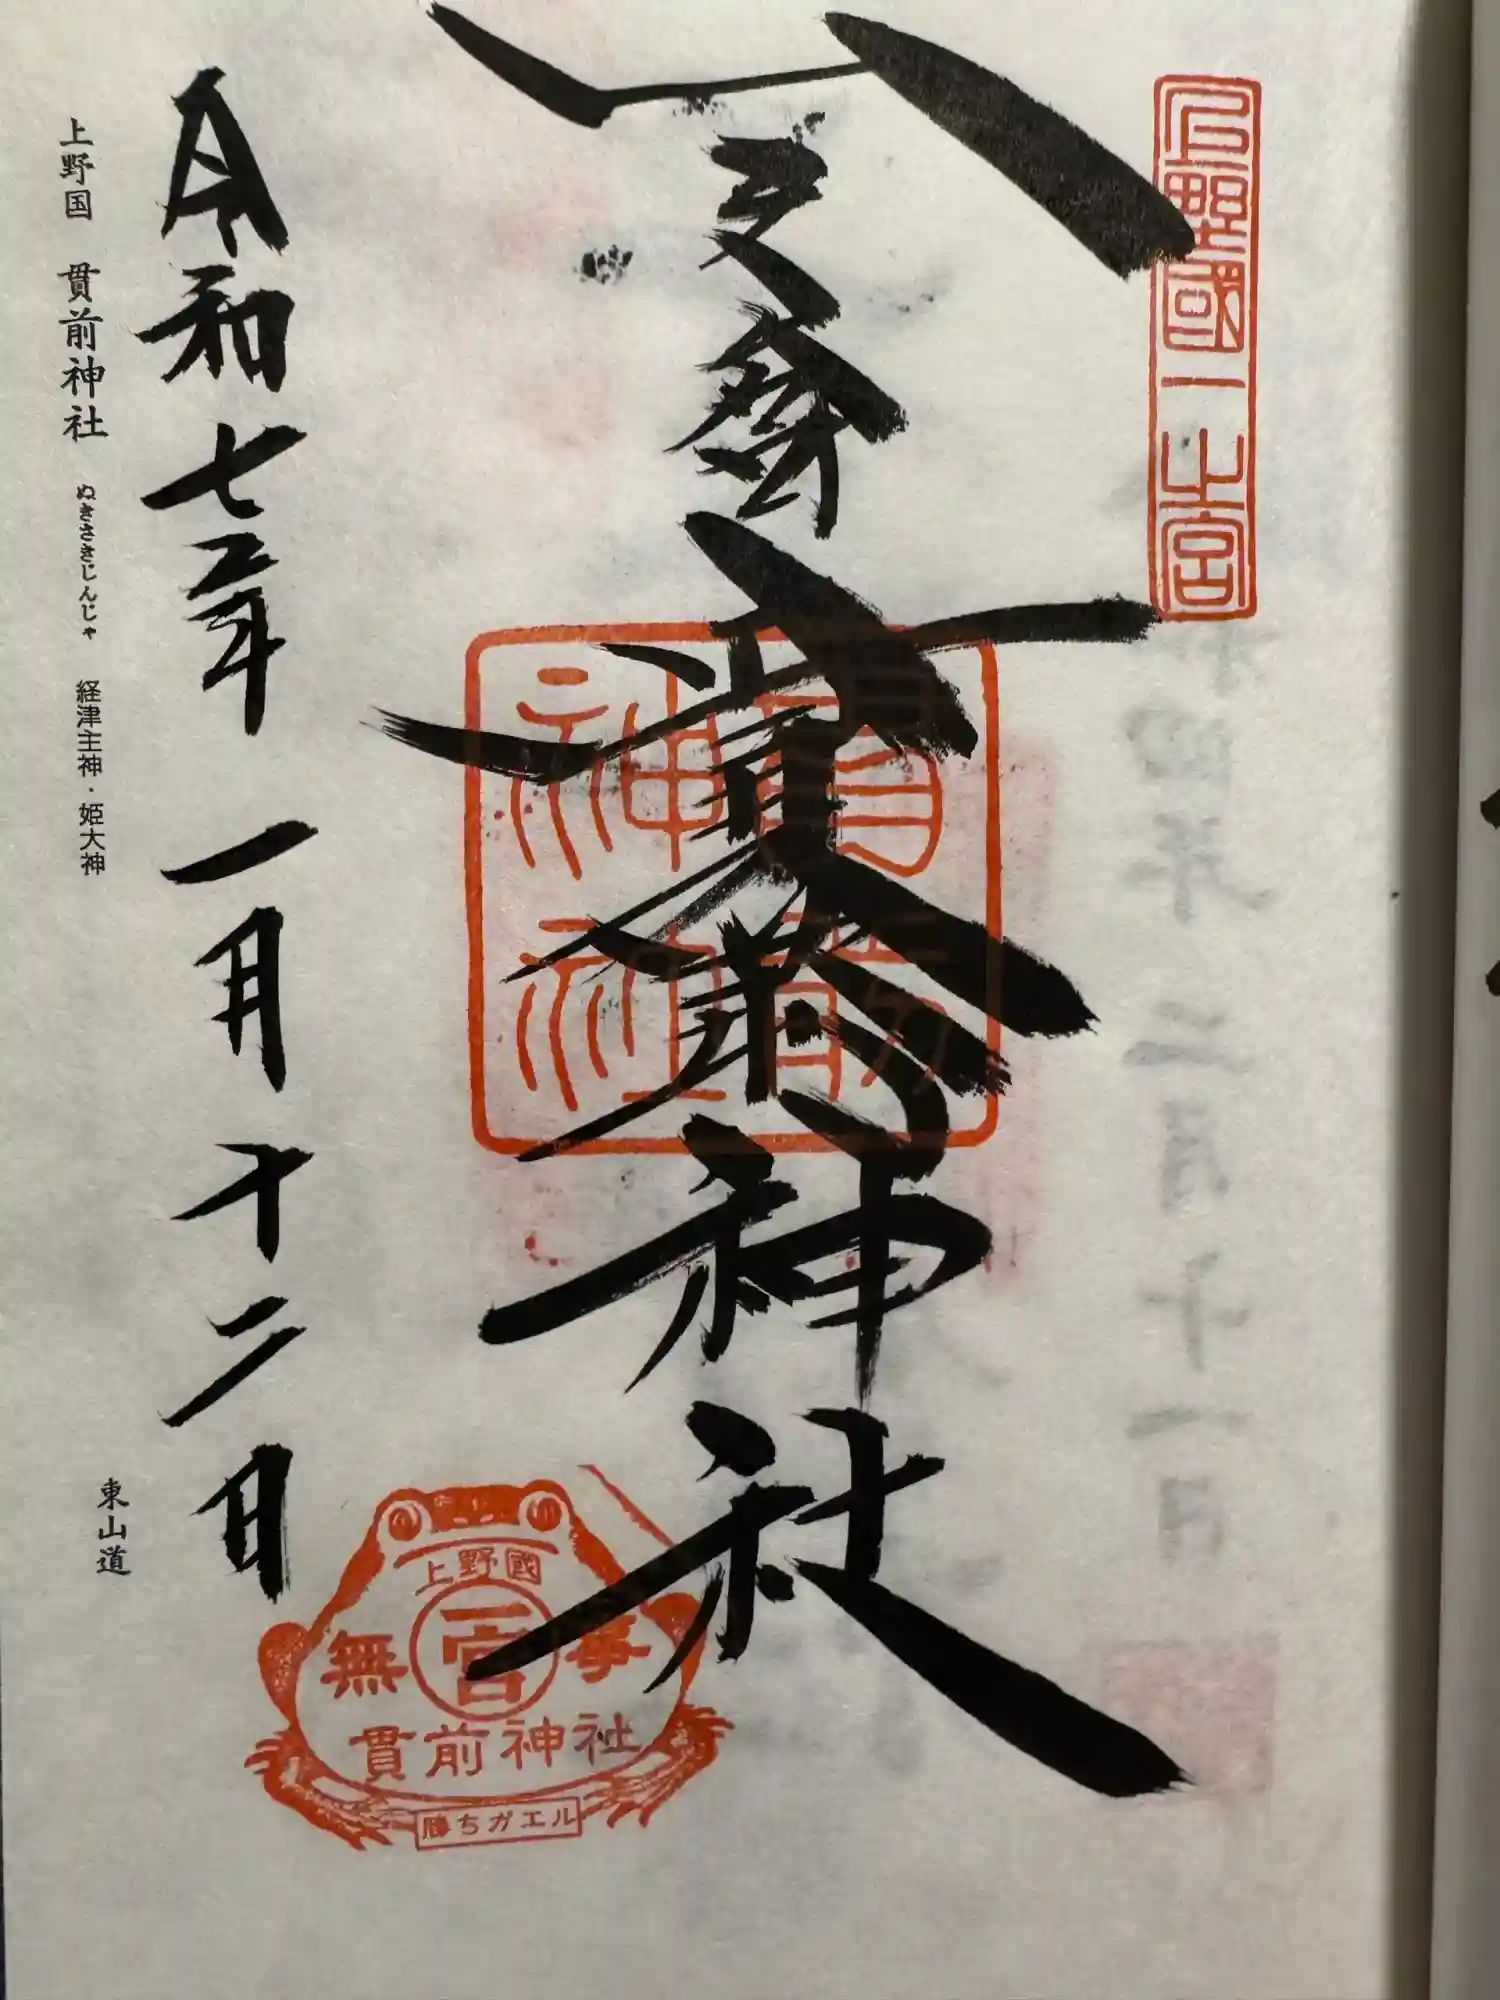 上野國一之宮
奉拝
貫前神社
貫前神社
令和七年 一月十二日
上野国 貫前神社 ぬきさきじんじゃ 経津主神・姫大神
東山道
上野國
一宮
無事
貫前神社
勝ちガエル